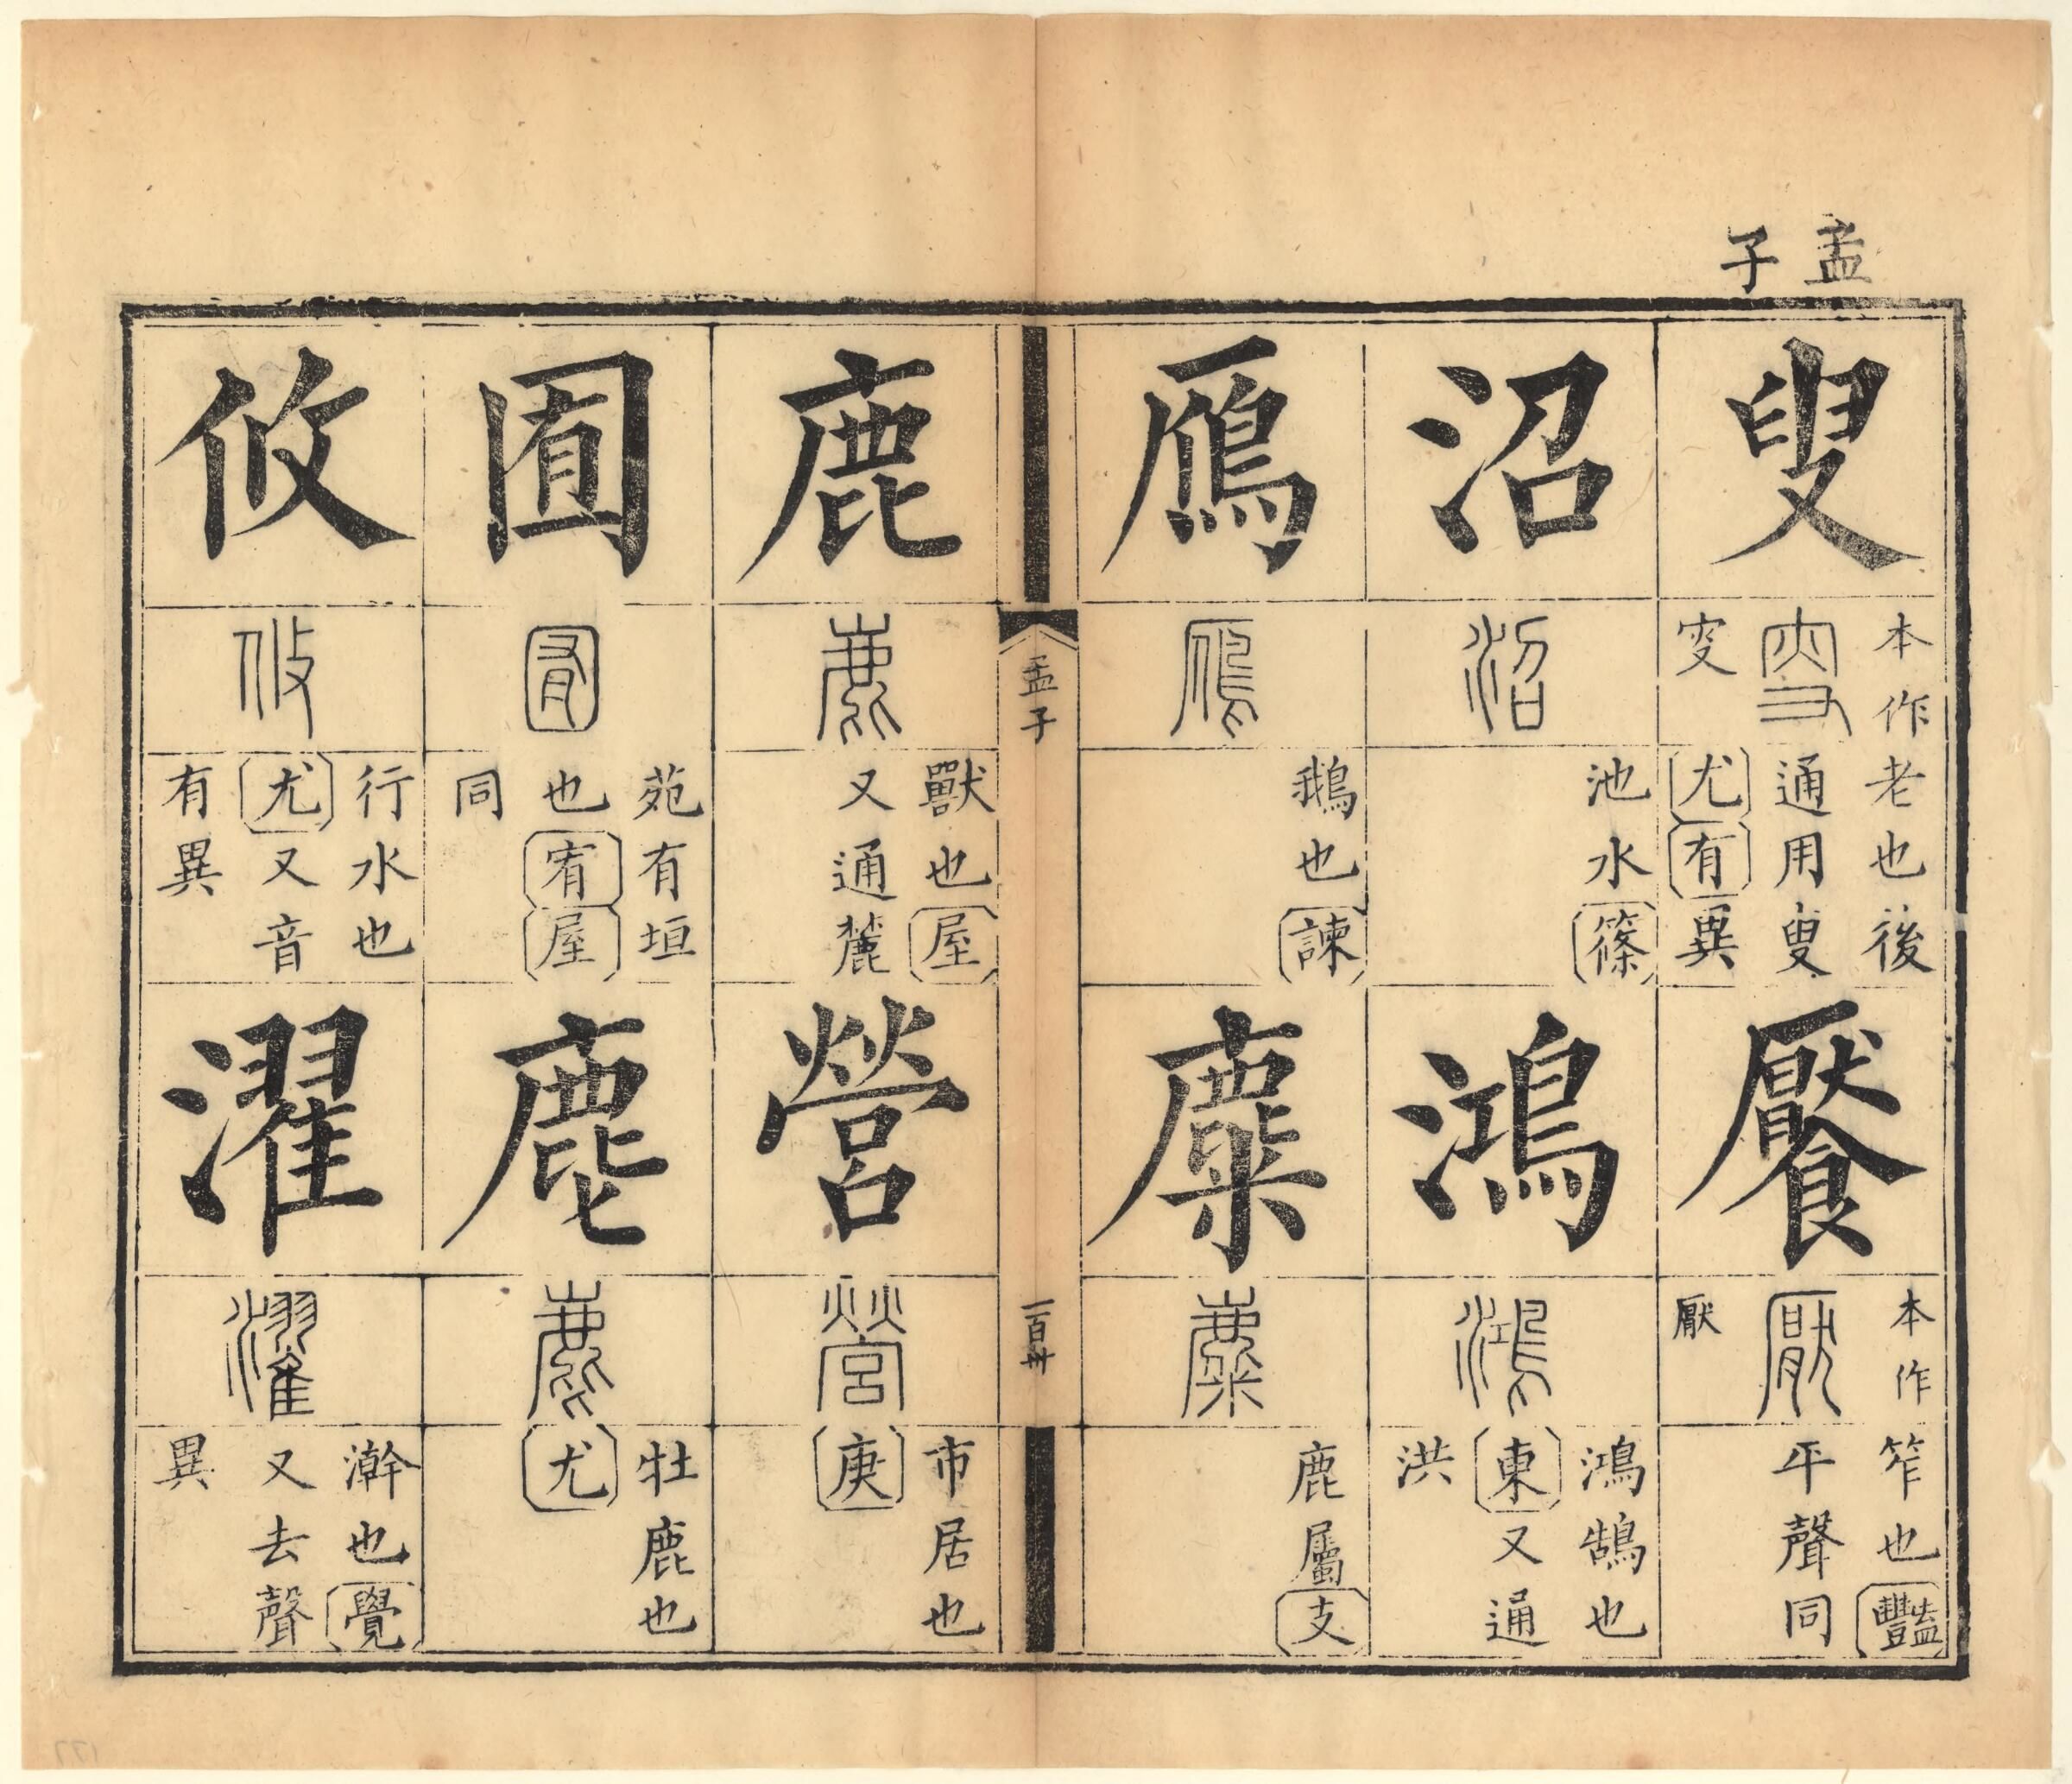 孟子
叟
本作
叜
老也後
通用叟
尤有異
饜
本作
猒
厭
笮也豔
平聲同
沼
沼
池水篠
鴻
鴻
鴻鵠也
東又通
洪
鴈
鴈
鵝也諫
麋
麋
鹿屬支
孟子
一百卅
鹿
鹿
獸也屋
又通麓
營
營
市居也
庚
囿
囿
苑有垣
也宥屋
同
麀
麀
牡鹿也
尤
攸
攸
行水也
尤又音
有異
濯
濯
澣也覺
又去聲
異